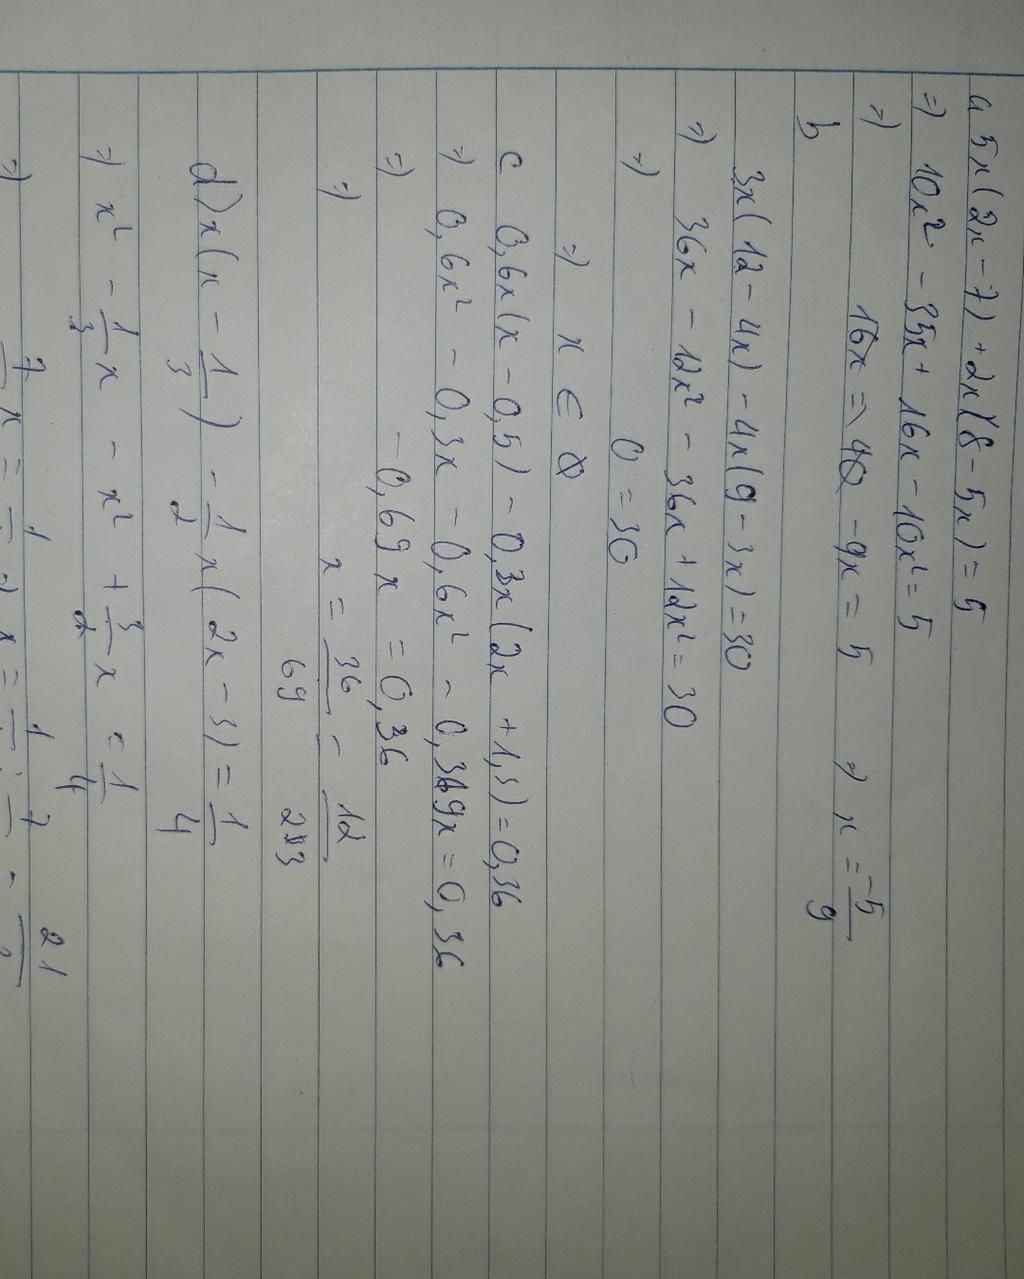 a 5x(2x - 7) + 2x(8 - 5x) = 5
=> 10x² - 35x + 16x - 10x² = 5
=> -9x = 5 => x = -5/9
b
3x(12 - 4x) - 4x(9 - 3x) = 30
=> 36x - 12x² - 36x + 12x² = 30
=> 0 = 30
=> x ∈ ∅
c 0,6x(x - 0,5) - 0,3x(2x + 1,3) = 0,36
=> 0,6x² - 0,3x - 0,6x² - 0,39x = 0,36
=> -0,69x = 0,36
=> x = 36/69 = 12/23
d) x(x - 1/3) - 1/2 x(2x - 3) = 1/4
=> x² - 1/3 x - x² + 3/2 x = 1/4